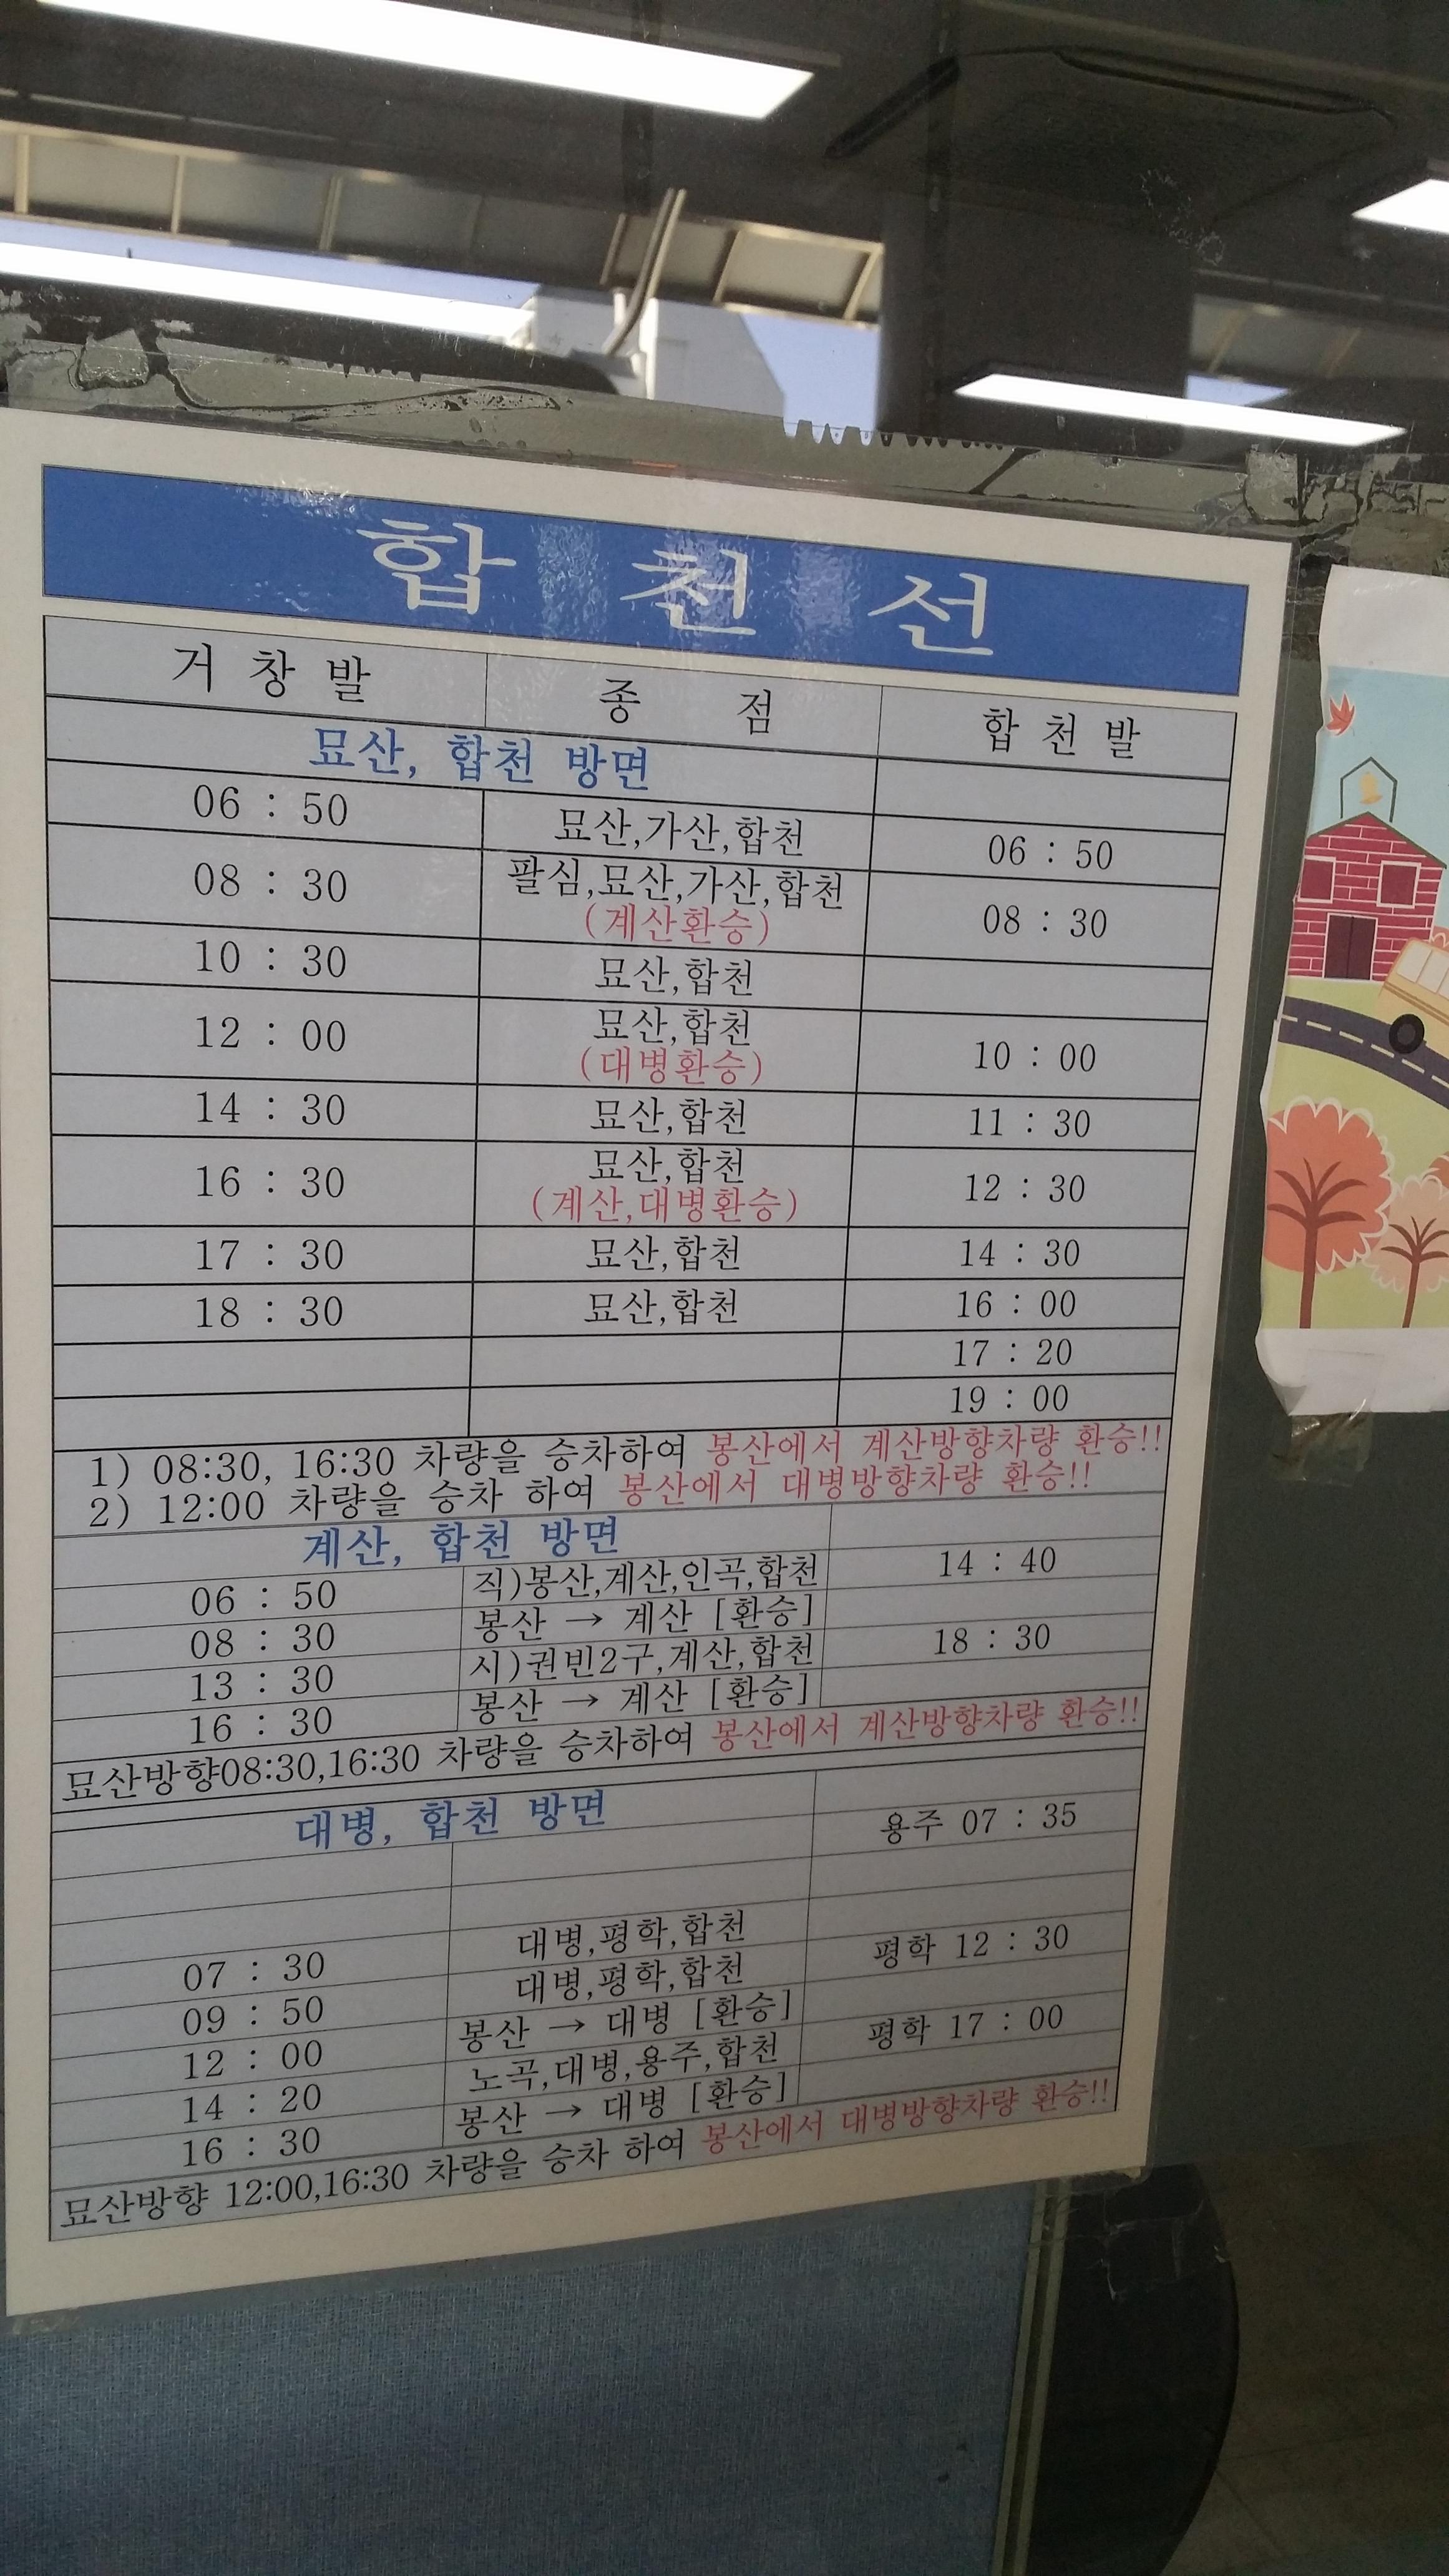 합 천 선
거 창 발 종 점 합 천 발
묘산, 합천 방면
06 : 50 묘산,가산,합천 06 : 50
08 : 30 팔심,묘산,가산,합천 08 : 30
(계산환승)
10 : 30 묘산,합천
12 : 00 묘산,합천 10 : 00
(대병환승)
14 : 30 묘산,합천 11 : 30
16 : 30 묘산,합천 12 : 30
(계산,대병환승)
17 : 30 묘산,합천 14 : 30
18 : 30 묘산,합천 16 : 00
17 : 20
19 : 00
1) 08:30, 16:30 차량을 승차하여 봉산에서 계산방향차량 환승!!
2) 12:00 차량을 승차 하여 봉산에서 대병방향차량 환승!!
계산, 합천 방면
06 : 50 직)봉산,계산,인곡,합천 14 : 40
08 : 30 봉산 → 계산 [환승]
13 : 30 시)권빈2구,계산,합천 18 : 30
16 : 30 봉산 → 계산 [환승]
묘산방향08:30,16:30 차량을 승차하여 봉산에서 계산방향차량 환승!!
대병, 합천 방면
용주 07 : 35
07 : 30 대병,평학,합천
09 : 50 대병,평학,합천 평학 12 : 30
12 : 00 봉산 → 대병 [환승]
14 : 20 노곡,대병,용주,합천 평학 17 : 00
16 : 30 봉산 → 대병 [환승]
묘산방향 12:00,16:30 차량을 승차 하여 봉산에서 대병방향차량 환승!!